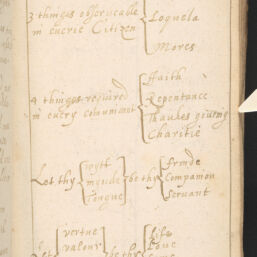 3 thinges obseruable
in euerie Citizen
Loquela
Mores
4 thinges required
in euery comunicant
Faith
Repentance
Thankes giuing
Charitie
Let thy
witt
minde
Tongue
be thy
frinde
Companion
Seruant
Let
vertue
valour
be thy
life
Loue